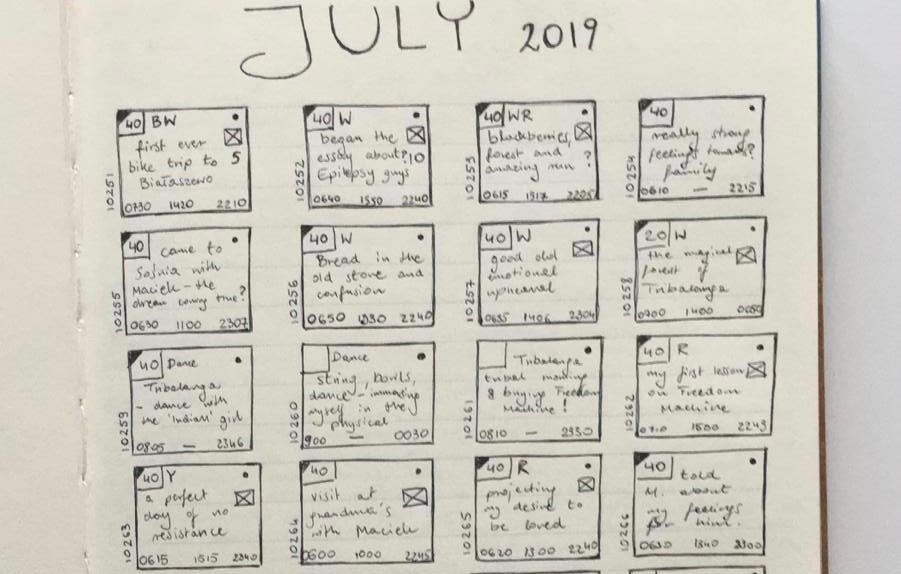 JULY 2019
10251
40 BW
first ever
bike trip to 5
Białaszewo
0730 1420 2210
10252
40 W
began the
essay about? 10
Epilepsy guys
0640 1550 2240
10253
40 WR
blackberries,
forest and
amazing run ?
0615 1517 2205
10254
40
really strong
feelings towards?
family
0610 — 2215
10255
40 came to
Sośnia with
Maciek - the
dream coming true?
0630 1100 2307
10256
40 W
Bread in the
old store and
confusion
0650 1230 2240
10257
40 W
good old
emotional
upheaval
0635 1406 2304
10258
20 W
the magical
forest of
Tribalanga
0700 1400
10259
40 Dance
Tribalanga
- dance with
the 'indian' girl
0805 — 2346
10260
Dance
string, bowls,
dance - immersing
myself in the
physical
900 — 0030
10261
Tribalanga
tribal morning
& buying Freedom
Machine!
0810 — 2330
10262
40 R
my first lesson
on Freedom
Machine
0710 1500 2243
10263
40 Y
a perfect
day of no
resistance
0615 1515 2340
10264
40
visit at
grandma's
with Maciek
0600 1000 2245
10265
40 R
projecting
my desire to
be loved
0620 1300 2240
10266
40 told
M. about
my feelings
for him.
0630 1340 2300